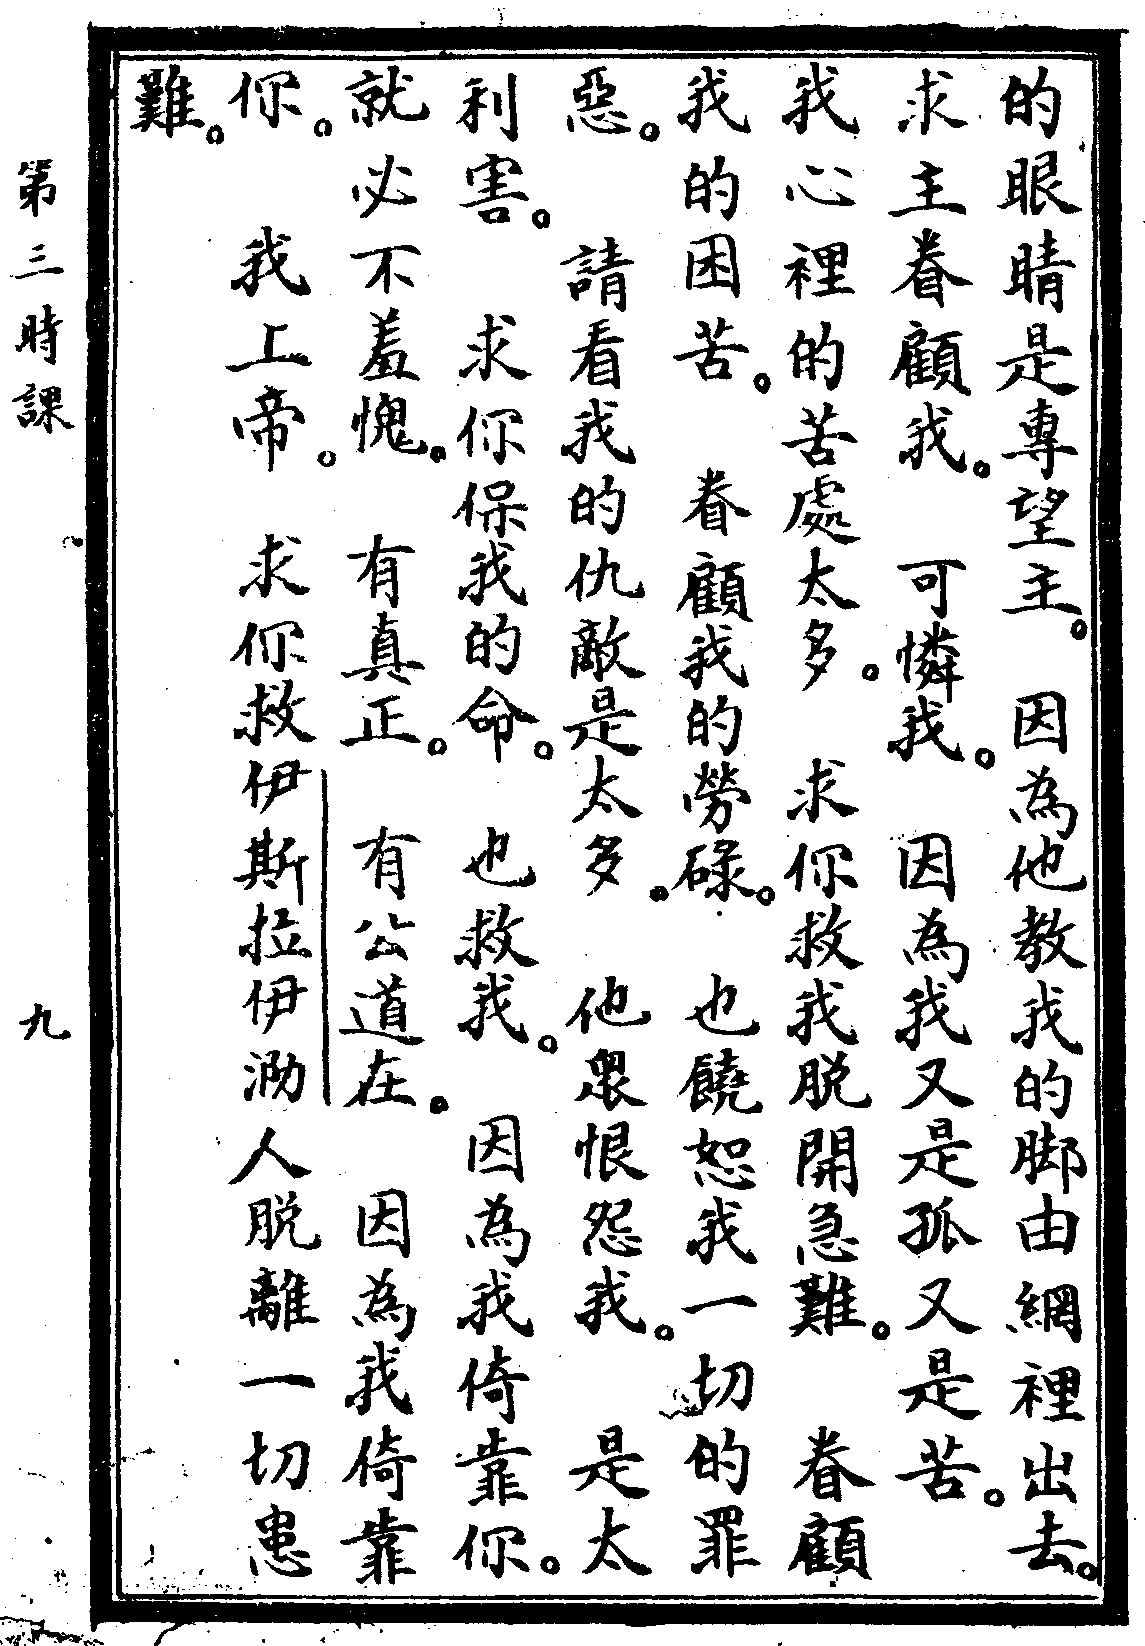 的眼睛是專望主。因為他教我的脚由網裡出去。
求主眷顧我。可憐我。因為我又是孤又是苦。
我心裡的苦處太多。求你救我脱開急難。眷顧
我的困苦。眷顧我的勞碌。也饒恕我一切的罪
惡。請看我的仇敵是太多。他衆恨怨我。是太
利害。求你保我的命。也救我。因為我倚靠你。
就必不羞愧。有真正。有公道在。因為我倚靠
你。我上帝。求你救伊斯拉伊泐人脱離一切患
難。
第三時課
九